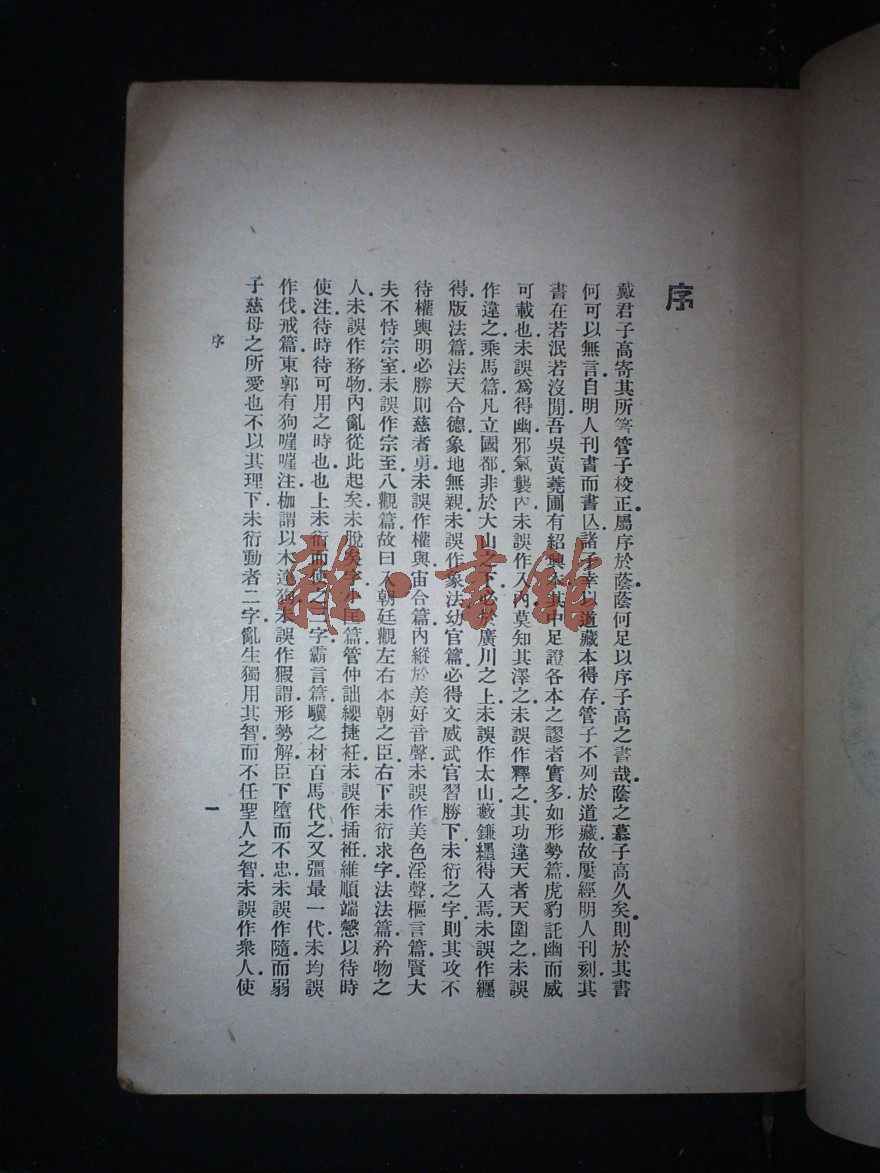 序
戴君子高寄其所箸管子校正屬序於蔭蔭何足以序子高之書哉蔭之慕子高久矣則於其書
何可以無言自明人刊書而書亾諸子幸以道藏本得存管子不列於道藏故屢經明人刊刻其
書在若泯若沒閒吾吳黃蕘圃有紹興本其中足證各本之謬者實多如形勢篇虎豹託幽而威
可載也未誤爲得幽邪氣襲內未誤作入內莫知其澤之未誤作釋之其功違天者天圍之未誤
作違之乘馬篇凡立國都非於大山之下必於廣川之上未誤作太山藪鎌纆得入焉未誤作纏
得版法篇法天合德象地無親未誤作象法幼官篇必得文威武官習勝下未衍之字則其攻不
待權輿明必勝則慈者勇未誤作權與宙合篇內縱於美好音聲未誤作美色淫聲樞言篇賢大
夫不恃宗室未誤作宗至八觀篇故曰入朝廷觀左右本朝之臣右下未衍求字法法篇矜物之
人未誤作務物內亂從此起矣未脫矣字小匡篇管仲詘纓捷衽未誤作插衽維順端愨以待時
使注待時待可用之時也也上未衍而使之三字霸言篇驥之材百馬代之又彊最一代未均誤
作伐戒篇東郭有狗嘊嘊注枷謂以木連狗未誤作猳謂形勢解臣下墮而不忠未誤作隨而弱
子慈母之所愛也不以其理下未衍動者二字亂生獨用其智而不任聖人之智未誤作衆人使
序
一
雜·書館